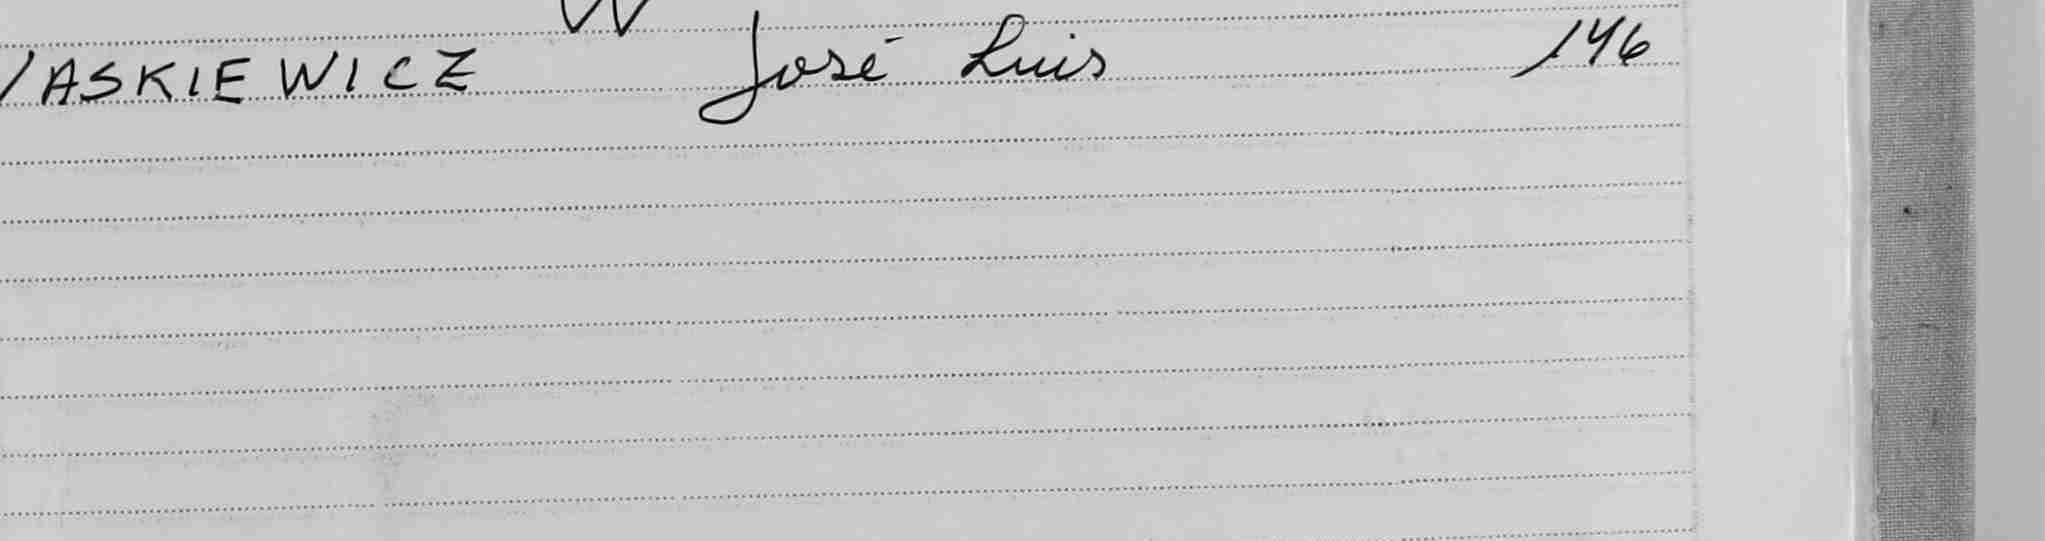 W
WASKIEWICZ José Luis 146